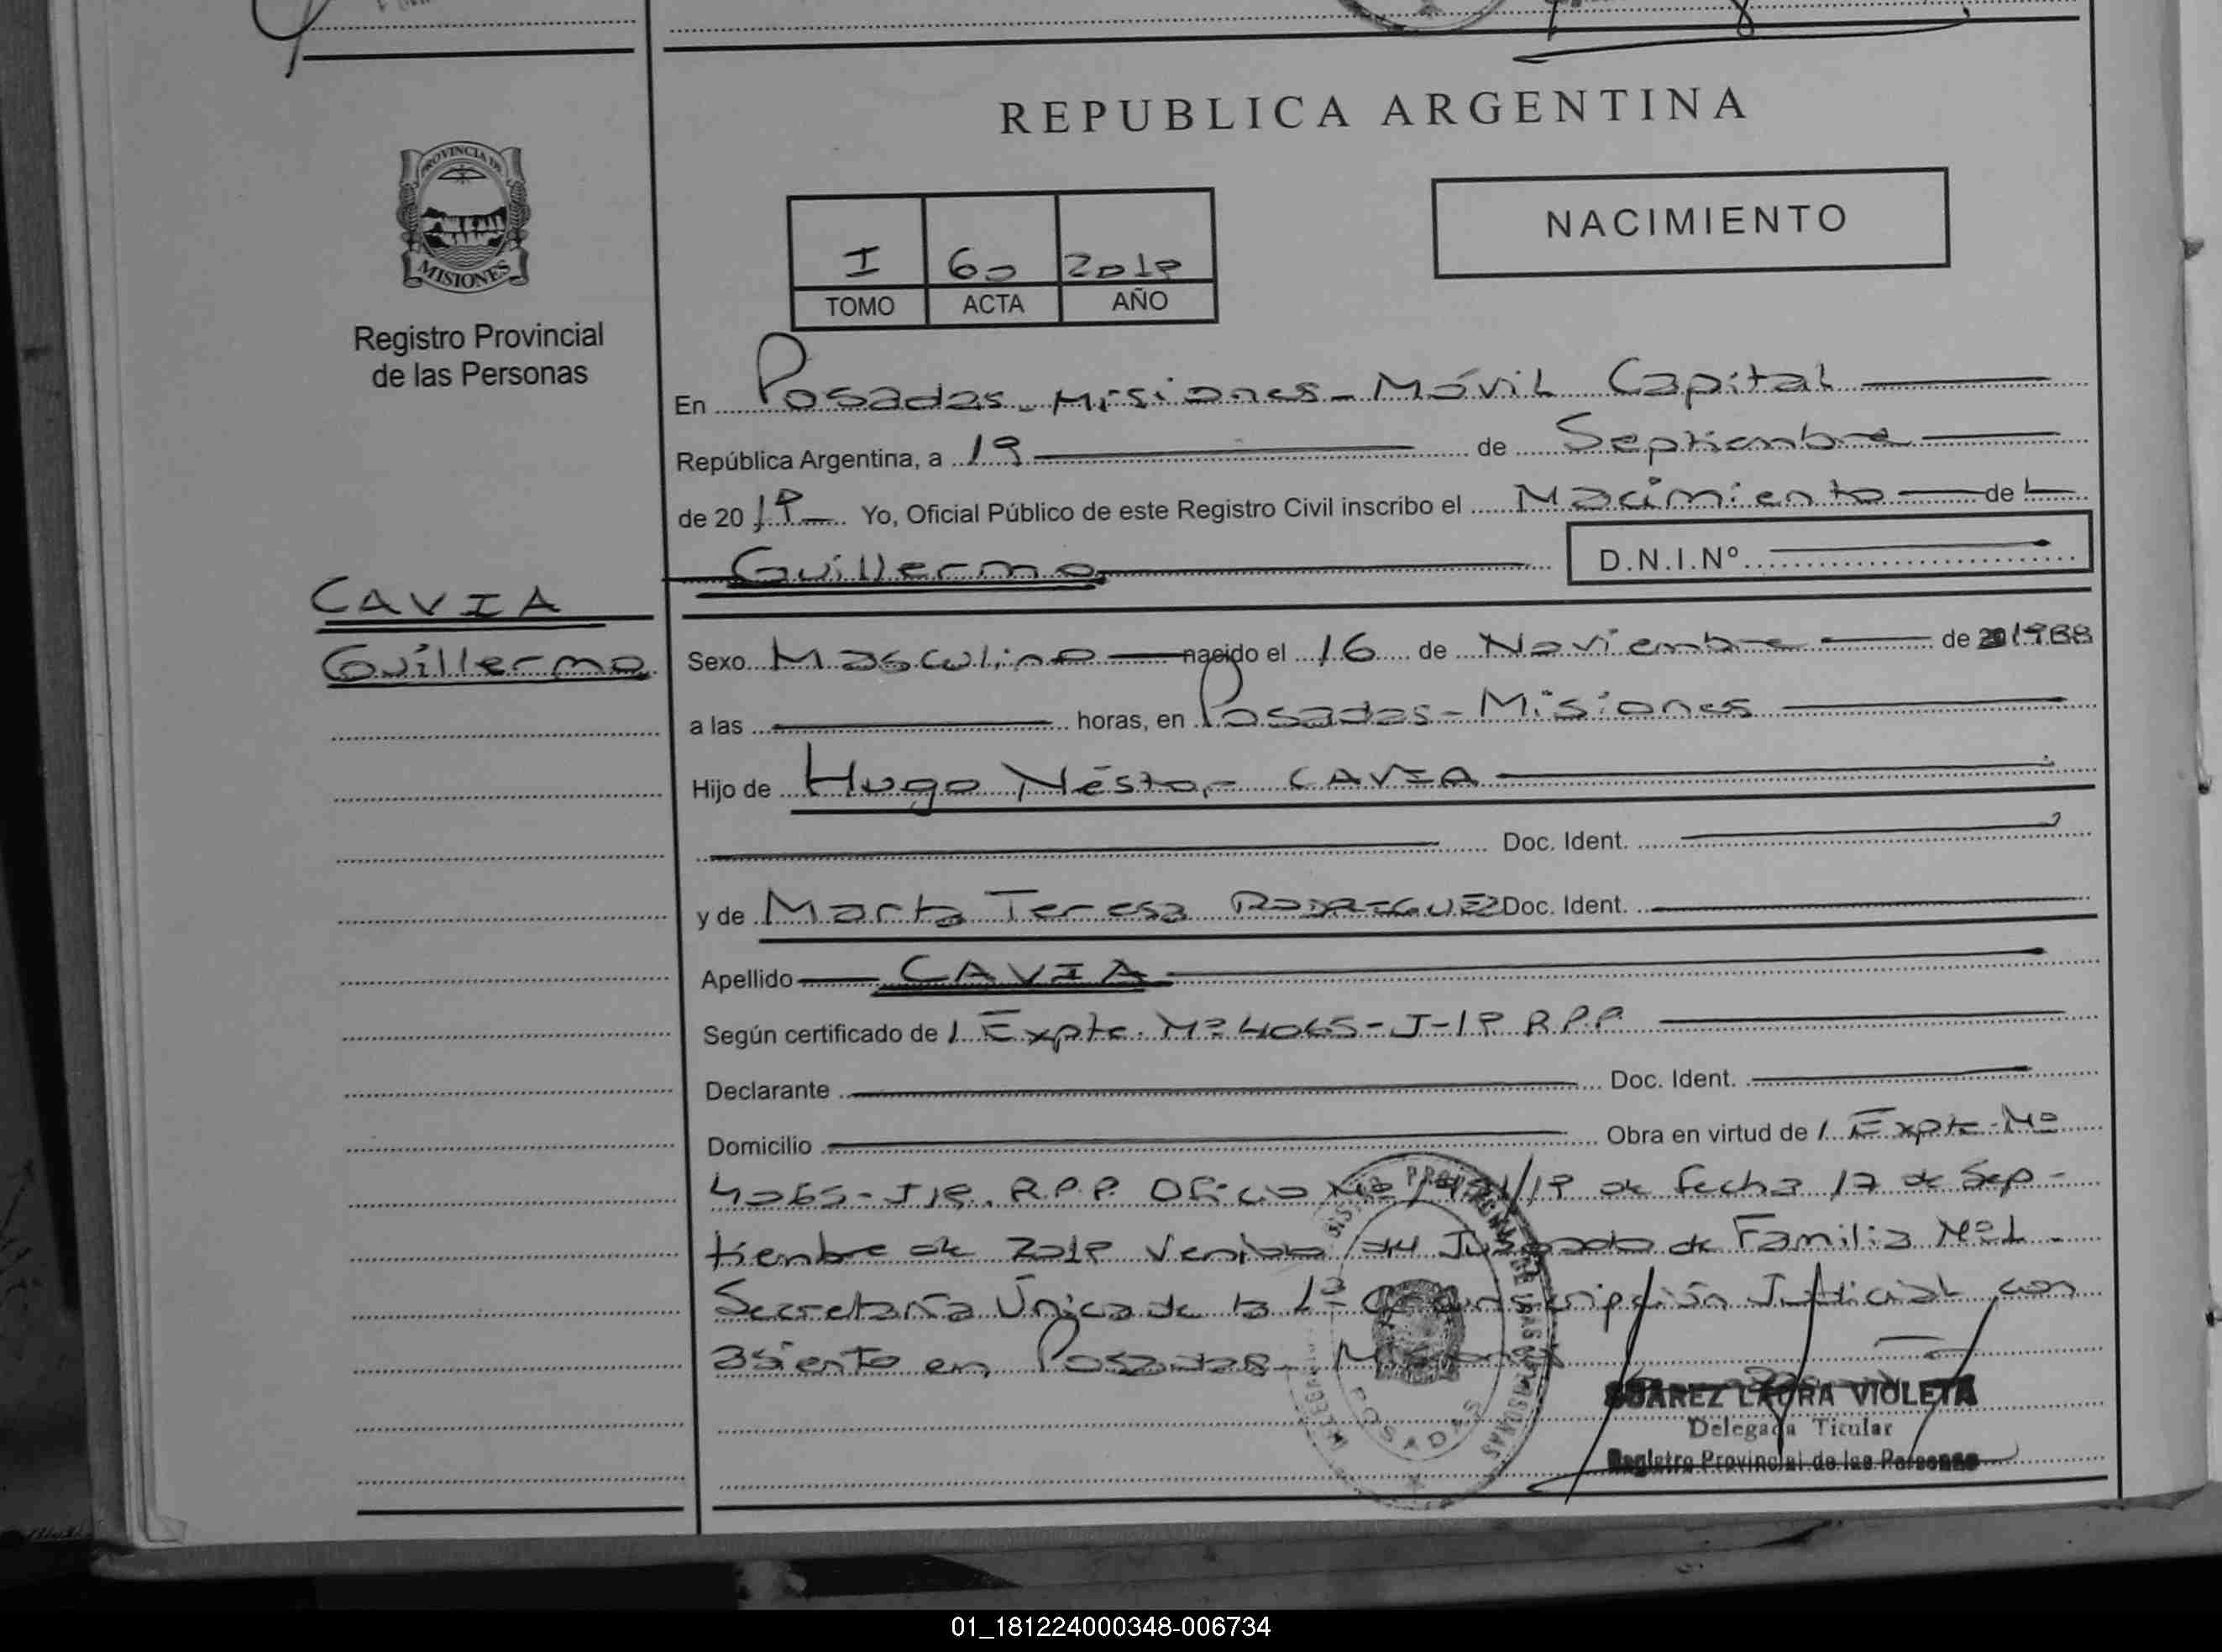 REPUBLICA ARGENTINA
PROVINCIA DE
MISIONES
Registro Provincial
de las Personas
NACIMIENTO
I 60 2019
TOMO ACTA AÑO
En Posadas - Misiones - Móvil Capital
República Argentina, a 19 de Septiembre
de 2019 Yo, Oficial Público de este Registro Civil inscribo el Nacimiento de L
Guillermo D.N.I.Nº
CAVIA
Guillermo
Sexo Masculino nacido el 16 de Noviembre de 1988
a las horas, en Posadas - Misiones
Hijo de Hugo Néstor CAVIA
Doc. Ident.
y de Marta Teresa RODRIGUEZ Doc. Ident.
Apellido CAVIA
Según certificado de / Expte. Nº 4065-J-19 R.P.P.
Declarante Doc. Ident.
Domicilio Obra en virtud de / Expte. Nº
4065-J19. R.P.P. Oficio Nº /19 de fecha 17 de Sep-
tiembre de 2019 Venido del Juzgado de Familia Nº1.
Secretaría Única de la 1ª Circunscripción Judicial con
asiento en Posadas - Misiones
POSADAS
SUAREZ LAURA VIOLETA
Delegada Titular
Registro Provincial de las Personas
01_181224000348-006734